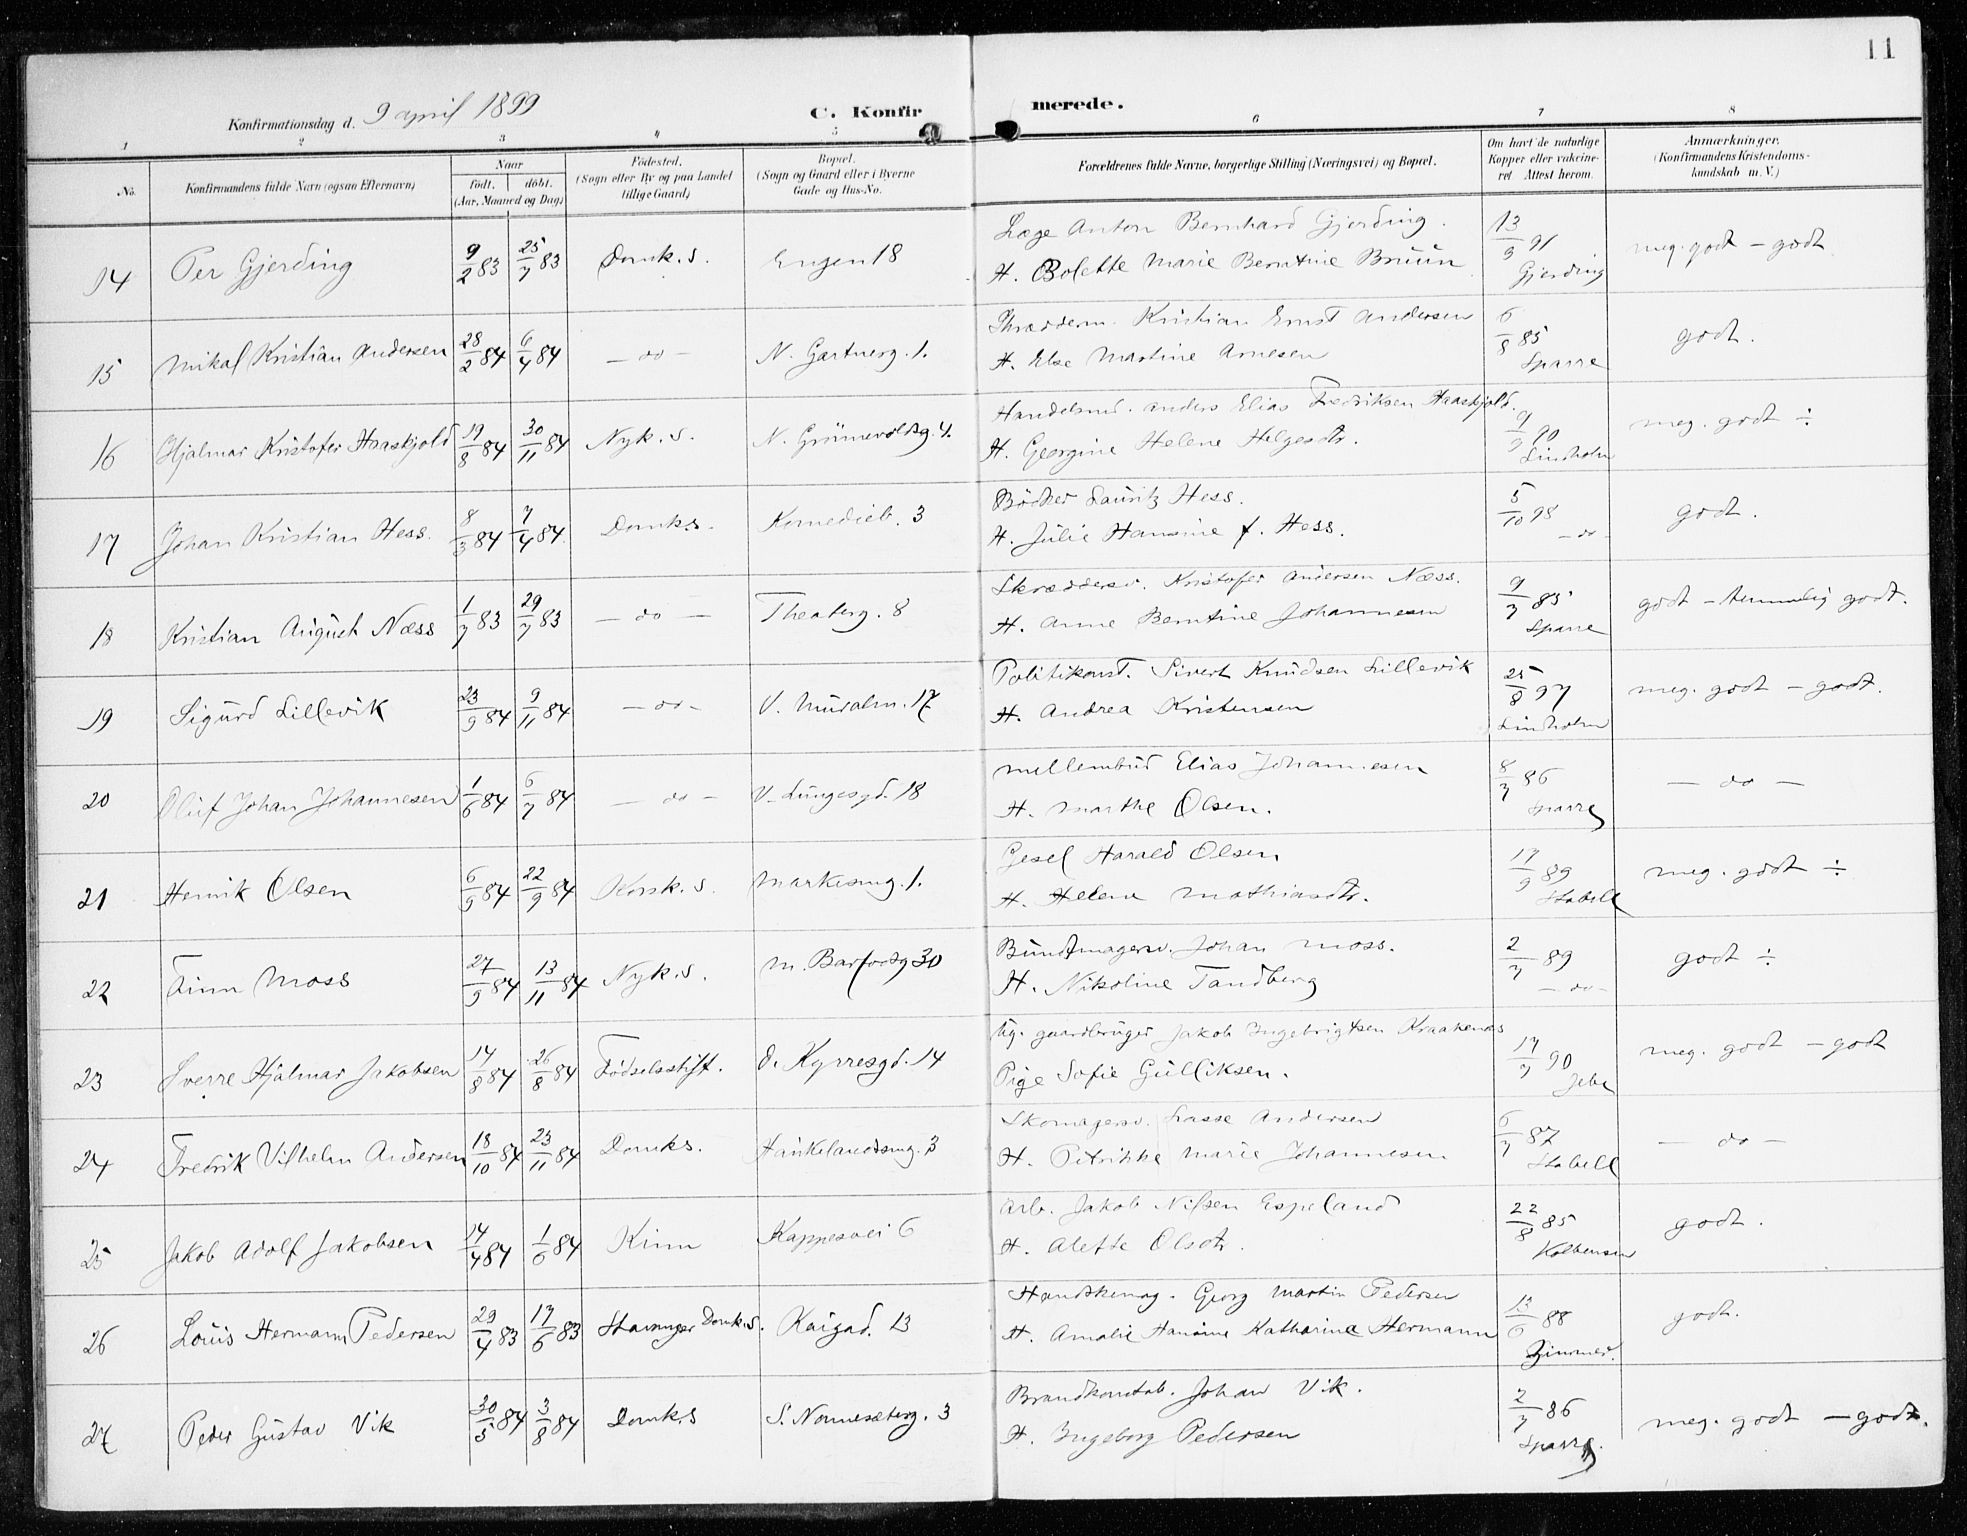 11
Konfirmationsdag d. 9 april 1899
C. Konfirmerede.
1 2 3 4 5 6 7 8
No.
Konfirmandens fulde Navn (ogsaa Efternavn)
Naar
födt. döbt.
(Aar, Maaned og Dag)
Födested.
(Sogn eller By og paa Landet
tillige Gaard)
Bopæl.
(Sogn og Gaard eller i Byerne
Gade og Hus-No.
Forældrenes fulde Navne, borgerlige Stilling (Næringsvei) og Bopæl.
Om havt de naturlige
Kopper eller vakcine-
ret Attest herom.
Anmærkninger.
(Konfirmandens Kristendoms-
kundskab m. V.)
14 Per Gjerding 9/2 83 25/7 83 Domk.s. Engen 18
Læge Anton Bernhard Gjerding.
H. Bolette Marie Berntine Brüün
13/9 91 Gjerding
meg. godt - godt
15 Mikal Kristian Andersen 28/2 84 6/4 84 - do - N. Gartnerg. 1.
Kristian Ernst Andersen
H. Else Martine Arnesen
6/8 85 Sparre
godt.
16 Hjalmar Kristofer Haaskjold 19/8 84 30/11 84 Nyk.s. N. Grünevoldsg. 4.
Handelsmd. Anders Elias Fredriksen Haaskjold.
H. Georgine Helene Helgesdtr.
9/9 90 Lindholm
meg. godt ÷
17 Johan Kristian Hess. 8/3 84 7/4 84 Domk.s. Komedieb. 3
Bödker Lauritz Hess.
H. Julie Hansine f. Hess.
5/10 98 - do -
godt.
18 Kristian August Næss 1/7 83 29/7 83 - do - Theaterg. 8
Skræddersv. Kristofer Andersen Næss.
H. Anne Berntine Johannesen
9/7 85 Sparre
godt - temmelig godt.
19 Sigurd Lillevik 23/9 84 9/11 84 - do - V. Muralm. 17
Politikonst. Sivert Knudsen Lillevik
H. Andrea Kristensen
25/8 97 Lindholm
meg. godt - godt.
20 Oluf Johan Johannesen 1/6 84 6/7 84 - do - V. Lungesgd. 18
Mellembud Elias Johannesen
H. Marthe Olsen.
8/7 86 Sparre
- do -
21 Henrik Olsen 6/9 84 22/9 84 Korsk.s. Markesmg. 1.
Gesel Harald Olsen
H. Helene Mathiasdtr.
17/9 89 Stabell
meg. godt ÷
22 Finn Moss 27/9 84 13/11 84 Nyk.s. M. Barfodsg 30
Bundtmagersv. Johan Moss.
H. Nikoline Tandberg
2/7 89 - do -
godt ÷
23 Sverre Hjalmar Jakobsen 14/8 84 26/8 84 Födselsstift. O. Kyrresgd. 14
Ug. gaardbruger Jakob Ingebrigtsen Kraakenæs
Pige Sofie Gulliksen.
17/7 90
meg. godt - godt
24 Fredrik Vilhelm Andersen 18/10 84 23/11 84 Domks. Haukelandsmg. 3
Skomagersv. Lasse Andersen
H. Petrikke Marie Johannesen
6/7 87 Stabell
- do -
25 Jakob Adolf Jakobsen 14/4 84 1/6 84 Kinn Kappesvei 6
Arb. Jakob Nilsen Espeland
H. Alette Olsdtr.
22/8 85 Kolbensen
godt.
26 Louis Hermann Pedersen 29/4 83 17/6 83 Stavanger Domk.s. Kaigad. 13
Handskemag. Georg Martin Pedersen
H. Amalie Hansine Katharine Hermann
13/6 88 Zimmer.
godt.
27 Peder Gustav Vik 30/5 84 3/8 84 Domk.s S. Nonnesæterg. 3
Brandkonstab. Johan Vik.
H. Ingeborg Pedersen
2/7 86 Sparre.
meg. godt - godt.